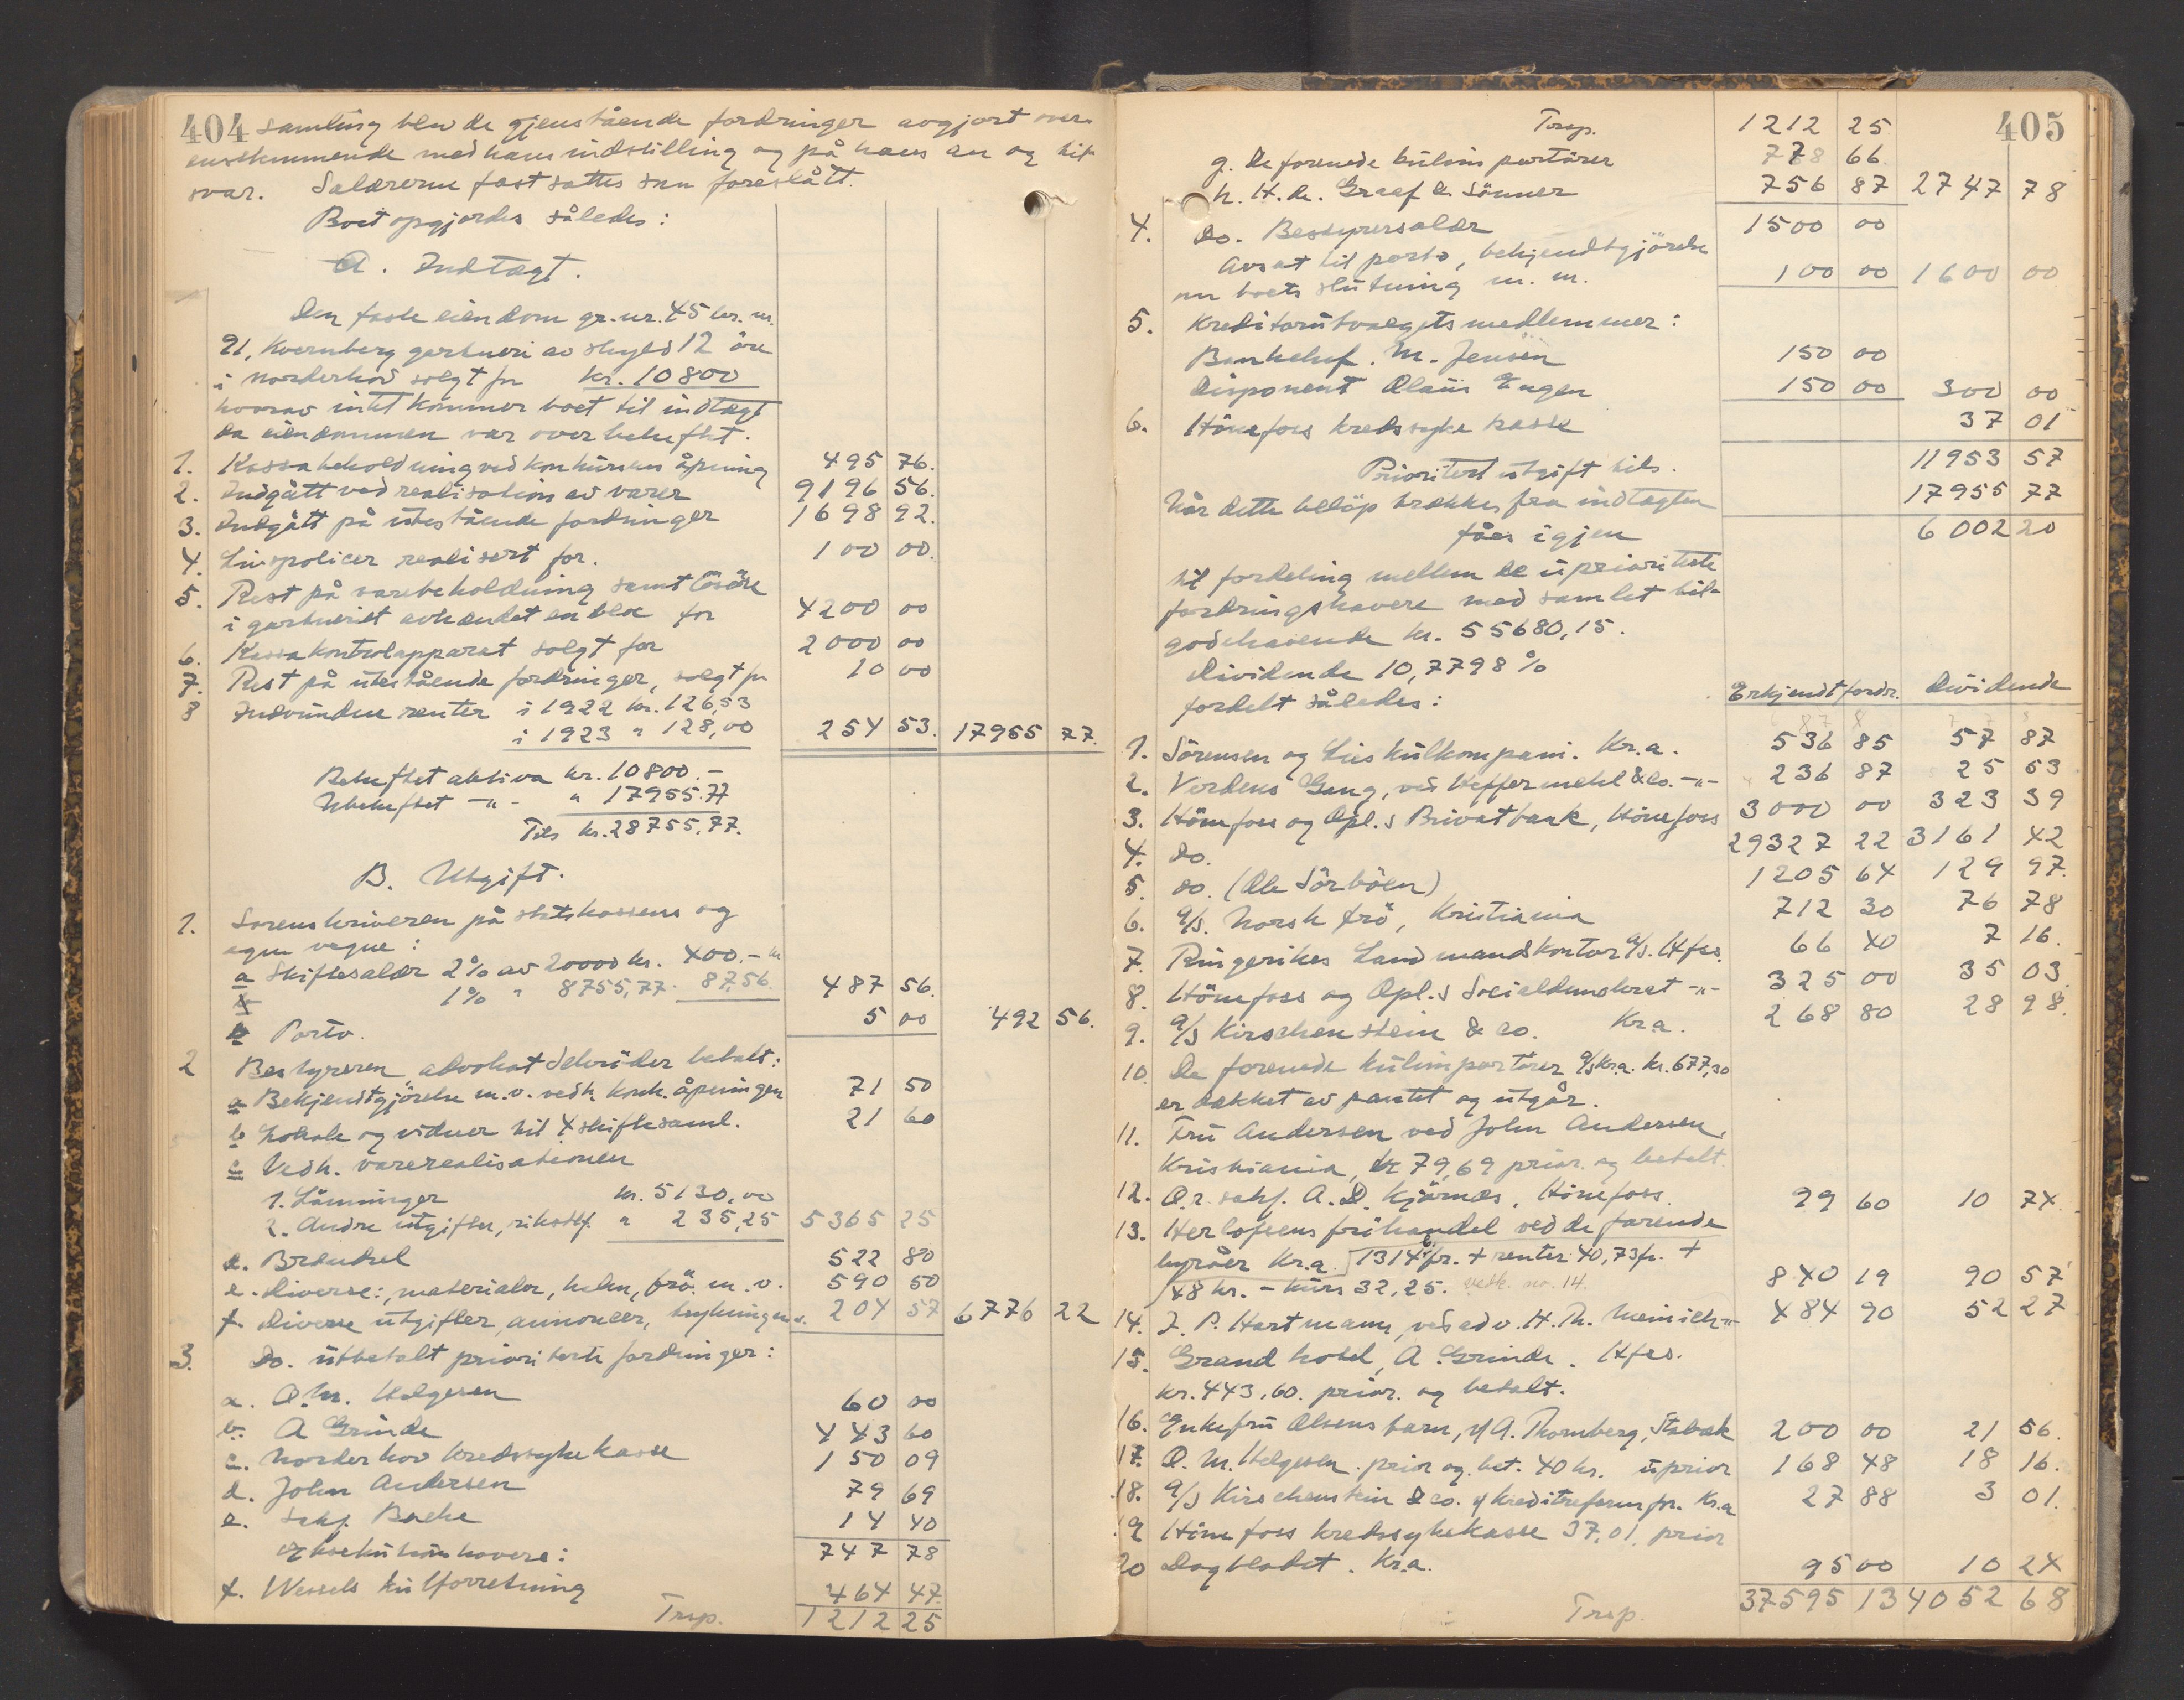 404 samling blev de gjenstående fordringer avgjort over-
ensstemmende med hans indstilling og på hans an og til-
svar. Salærerne fastsattes som foreslått.
Boet opgjordes således:
A. Indtægt.
Den faste eiendom gr.nr. 45 br.nr.
91, Kvernberg gartneri av skyld 12 öre
i Norderhov solgt for kr. 10800
hvorav intet kommer boet til indtægt
da eiendommen var overbeheftet.
1. Kassabeholdning ved konkursens åpning 495 76.
2. Indgått ved realisation av varer 9196 56.
3. Indgått på utestående fordringer 1698 92.
4. Livspolicer realisert for. 100 00.
5. Rest på varebeholdning samt lösöre
i gartneriet avhændet en bloc for 4200 00
6. Kassakontrolapparat solgt for 2000 00
7. Rest på utestående fordringer, solgt for 10 00
8 Indvundne renter i 1922 kr. 126,53
i 1923 " 128,00 254 53. 17955 77.
Beheftet aktiva kr. 10800.-
Ubeheftet -"- " 17955.77
Tils kr. 28755,77.
B. Utgift.
1. Sorenskriveren på statskassens og
egne vegne:
a Skiftesalær 2% av 20000 kr. 400.-
1% " 8755,77. 87,56. 487 56.
b Porto. 5 00 492 56.
2 Bestyreren advokat Schrüder betalt:
a Bekjendtgjörelse m.v. vedk. konk. åpningen 71 50
b Lokale og vidner til 4 skiftesaml. 21 60
c Vedk. varerealisationen
1. Lönninger kr. 5130,00
2. Andre utgifter, rikstlf. " 235,25 5365 25
d. Brændsel 522 80
e. Diverse: materialer, frö m.v. 590 50
f. Diverse utgifter, annoncer, 204 57 6776 22
3. Do. utbetalt prioriterte fordringer:
a. O.M. Helgesen 60 00
b. A Grinde 443 60
c. Norderhov kredssykekasse 150 09
d. John Andersen 79 69
e. Sakf. Bache 14 40
eksekutionshavere: 747 78
f. Wessels kulforretning 464 47.
Trsp. 1212 25
Trsp. 1212 25 405
g. De forenede kulimportörer 778 66
h. H. de. Graaf & Sönner 756 87 2747 78
4. Do. Bestyrersalær 1500 00
Avsat til porto, bekjendtgjörelse
om boets slutning m.m. 100 00 1600 00
5. Kreditorutvalgets medlemmer:
Bankchef. M. Jensen 150 00
Disponent Olaus Engen 150 00 300 00
6. Hönefoss kredssykekasse 37 01
Prioritert utgift tils. 11953 57
Når dette belöp trækkes fra indtægten 17955 77
fåes igjen 6002 20
til fordeling mellem de upriorterte
fordringshavere med samlet til-
godehavende kr. 55680,15.
Dividende 10,7798%
fordelt således: Erkjendt fordr. Dividende
1. Sörensen og Lies kulkompani. Kr.a. 536 85 57 87
2. Verdens Gang, ved Keffermehl & Co. -"- 236 87 25 53
3. Hönefoss og Opl.s Privatbank, Hönefoss 3000 00 323 39
4. do. 29327 22 3161 42
5. do. (Ole Sörböen) 1205 64 129 97.
6. A/S. Norsk frö, Kristiania 712 30 76 78
7. Ringerikes Landmandskontor A/S. Hfss. 66 40 7 16.
8. Hönefoss og Opl.s Socialdemokrat -"- 325 00 35 03.
9. A/S Kirschenstein & Co. Kr.a. 268 80 28 98.
10. De forenede kulimportörer A/S Kr.a. kr. 677,30
er dækket av pantet og utgår.
11. Fru Andersen ved John Andersen,
Kristiania, kr 79,69 prior. og betalt.
12. O.r.sakf. A. D. Kjærnæs, Hönefoss. 99 60 10 74.
13. Herlofsens fröhandel ved de forende
byråer Kr.a. 1314 fr. + renter 40,73 fr. +
48 kr. - kurs 32,25. vedk. no. 14. 840 19 90 57
14. J. P. Hartmann, ved adv. H. Th. Meinich -"- 484 90 52 27
15. Grand hotel, A Grinde. Hfss.
kr. 443,60. prior. og betalt.
16. Enkefru Olsens barn, v/ A. Thornberg, Stabæk 200 00 21 56.
17. O. M. Helgesen. prior og bet. 40 kr. uprior 168 48 18 16.
18. A/S Kirschenstein & Co. v/ kreditreformfor. Kr.a 27 88 3 01.
19 Hönefoss kredssykekasse 37.01. prior
20 Dagbladet. Kr.a. 95 00 10 24
Trsp. 37595 13 4052 68